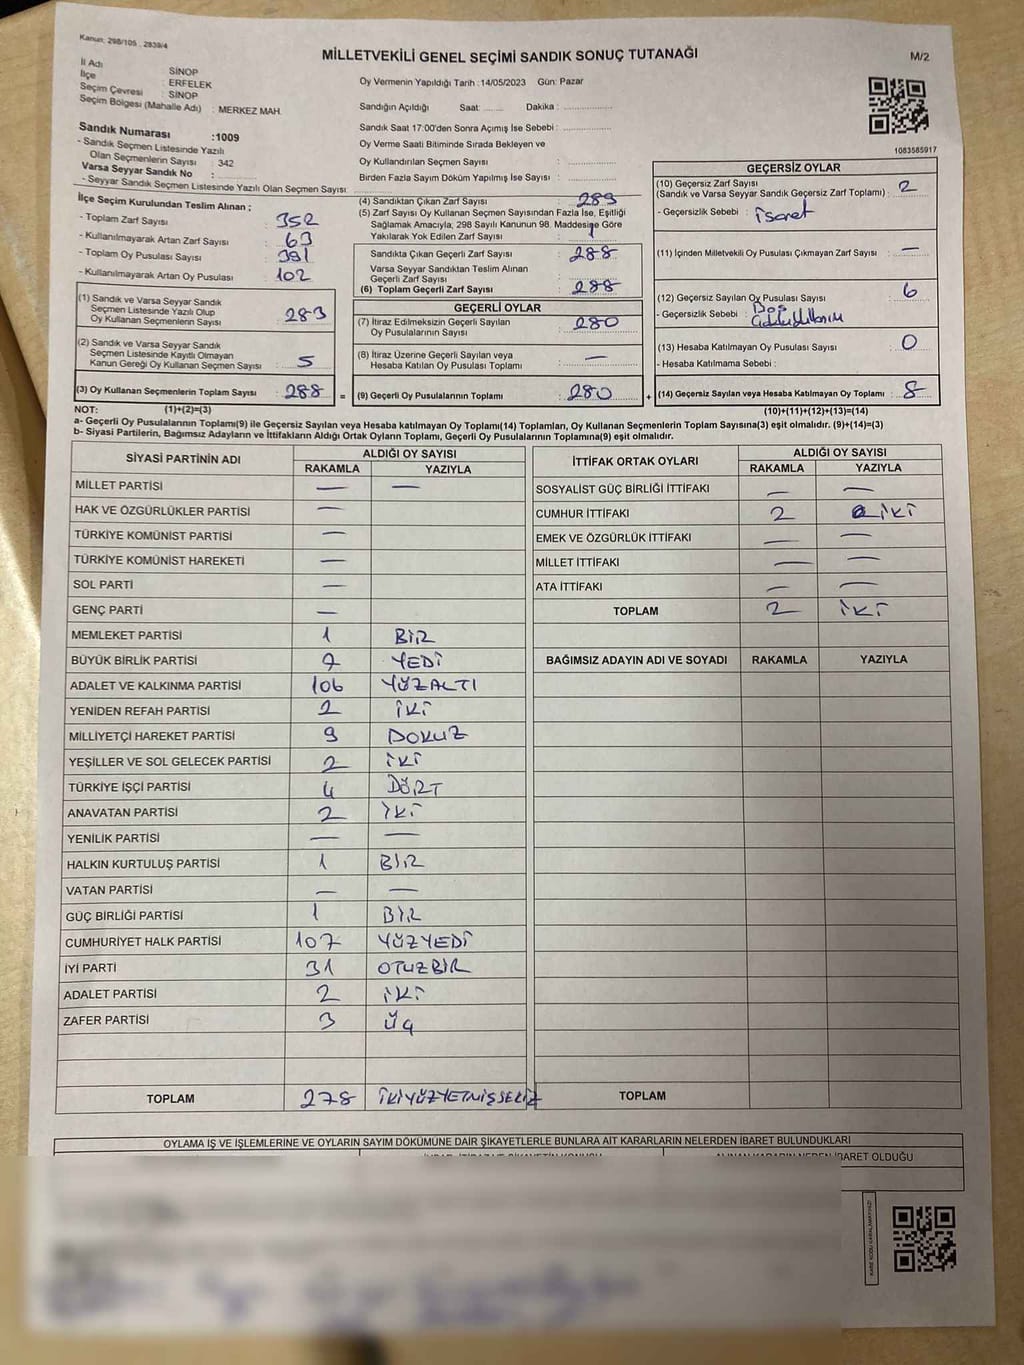 Kanun: 298/105 , 2839/4
MİLLETVEKİLİ GENEL SEÇİMİ SANDIK SONUÇ TUTANAĞI
M/2
İl Adı : SİNOP
İlçe : ERFELEK
Seçim Çevresi : SİNOP
Seçim Bölgesi (Mahalle Adı) : MERKEZ MAH.
Sandık Numarası :1009
- Sandık Seçmen Listesinde Yazılı
Olan Seçmenlerin Sayısı : 342
Varsa Seyyar Sandık No :
- Seyyar Sandık Seçmen Listesinde Yazılı Olan Seçmen Sayısı:
Oy Vermenin Yapıldığı Tarih :14/05/2023 Gün: Pazar
Sandığın Açıldığı Saat: ...... Dakika : ..................
Sandık Saat 17:00'den Sonra Açımış İse Sebebi : ..................
Oy Verme Saati Bitiminde Sırada Bekleyen ve
Oy Kullandırılan Seçmen Sayısı : ..................
Birden Fazla Sayım Döküm Yapılmış İse Sayısı : ..................
1083585917
İlçe Seçim Kurulundan Teslim Alınan ;
- Toplam Zarf Sayısı : 352
- Kullanılmayarak Artan Zarf Sayısı : 63
- Toplam Oy Pusulası Sayısı : 391
- Kullanılmayarak Artan Oy Pusulası : 102
(1) Sandık ve Varsa Seyyar Sandık
Seçmen Listesinde Yazılı Olup
Oy Kullanan Seçmenlerin Sayısı : 283
(2) Sandık ve Varsa Seyyar Sandık
Seçmen Listesinde Kayıtlı Olmayan
Kanun Gereği Oy Kullanan Seçmen Sayısı : 5
(3) Oy Kullanan Seçmenlerin Toplam Sayısı : 288 =
(4) Sandıktan Çıkan Zarf Sayısı : 289
(5) Zarf Sayısı Oy Kullanan Seçmen Sayısından Fazla İse, Eşitliği
Sağlamak Amacıyla, 298 Sayılı Kanunun 98. Maddesine Göre
Yakılarak Yok Edilen Zarf Sayısı : 1
Sandıkta Çıkan Geçerli Zarf Sayısı : 288
Varsa Seyyar Sandıktan Teslim Alınan
Geçerli Zarf Sayısı :
(6) Toplam Geçerli Zarf Sayısı : 288
GEÇERLİ OYLAR
(7) İtiraz Edilmeksizin Geçerli Sayılan
Oy Pusulalarının Sayısı : 280
(8) İtiraz Üzerine Geçerli Sayılan veya
Hesaba Katılan Oy Pusulası Toplamı : —
(9) Geçerli Oy Pusulalarının Toplamı : 280 +
GEÇERSİZ OYLAR
(10) Geçersiz Zarf Sayısı
(Sandık ve Varsa Seyyar Sandık Geçersiz Zarf Toplamı) : 2
- Geçersizlik Sebebi : işaret
(11) İçinden Milletvekili Oy Pusulası Çıkmayan Zarf Sayısı : —
(12) Geçersiz Sayılan Oy Pusulası Sayısı : 6
- Geçersizlik Sebebi : Boş
(13) Hesaba Katılmayan Oy Pusulası Sayısı : 0
- Hesaba Katılmama Sebebi :
(14) Geçersiz Sayılan veya Hesaba Katılmayan Oy Toplamı : 8
NOT: (1)+(2)=(3)
(10)+(11)+(12)+(13)=(14)
a- Geçerli Oy Pusulalarının Toplamı(9) ile Geçersiz Sayılan veya Hesaba katılmayan Oy Toplamı(14) Toplamları, Oy Kullanan Seçmenlerin Toplam Sayısına(3) eşit olmalıdır. (9)+(14)=(3)
b- Siyasi Partilerin, Bağımsız Adayların ve İttifakların Aldığı Ortak Oyların Toplamı, Geçerli Oy Pusulalarının Toplamına(9) eşit olmalıdır.
SİYASİ PARTİNİN ADI ALDIĞI OY SAYISI
RAKAMLA YAZIYLA
MİLLET PARTİSİ — —
HAK VE ÖZGÜRLÜKLER PARTİSİ —
TÜRKİYE KOMÜNİST PARTİSİ —
TÜRKİYE KOMÜNİST HAREKETİ —
SOL PARTİ —
GENÇ PARTİ —
MEMLEKET PARTİSİ 1 BİR
BÜYÜK BİRLİK PARTİSİ 7 YEDİ
ADALET VE KALKINMA PARTİSİ 106 YÜZALTI
YENİDEN REFAH PARTİSİ 2 İKİ
MİLLİYETÇİ HAREKET PARTİSİ 9 DOKUZ
YEŞİLLER VE SOL GELECEK PARTİSİ 2 İKİ
TÜRKİYE İŞÇİ PARTİSİ 4 DÖRT
ANAVATAN PARTİSİ 2 İKİ
YENİLİK PARTİSİ — —
HALKIN KURTULUŞ PARTİSİ 1 BİR
VATAN PARTİSİ — —
GÜÇ BİRLİĞİ PARTİSİ 1 BİR
CUMHURİYET HALK PARTİSİ 107 YÜZYEDİ
İYİ PARTİ 31 OTUZBİR
ADALET PARTİSİ 2 İKİ
ZAFER PARTİSİ 3 ÜÇ
TOPLAM 278 İKİYÜZYETMİŞSEKİZ
İTTİFAK ORTAK OYLARI ALDIĞI OY SAYISI
RAKAMLA YAZIYLA
SOSYALİST GÜÇ BİRLİĞİ İTTİFAKI — —
CUMHUR İTTİFAKI 2 İKİ
EMEK VE ÖZGÜRLÜK İTTİFAKI — —
MİLLET İTTİFAKI — —
ATA İTTİFAKI — —
TOPLAM 2 İKİ
BAĞIMSIZ ADAYIN ADI VE SOYADI RAKAMLA YAZIYLA
TOPLAM
OYLAMA İŞ VE İŞLEMLERİNE VE OYLARIN SAYIM DÖKÜMÜNE DAİR ŞİKAYETLERLE BUNLARA AİT KARARLARIN NELERDEN İBARET BULUNDUKLARI
ALINAN KARARIN NEDEN İBARET OLDUĞU
KARE KODU KARALAMAYINIZ!